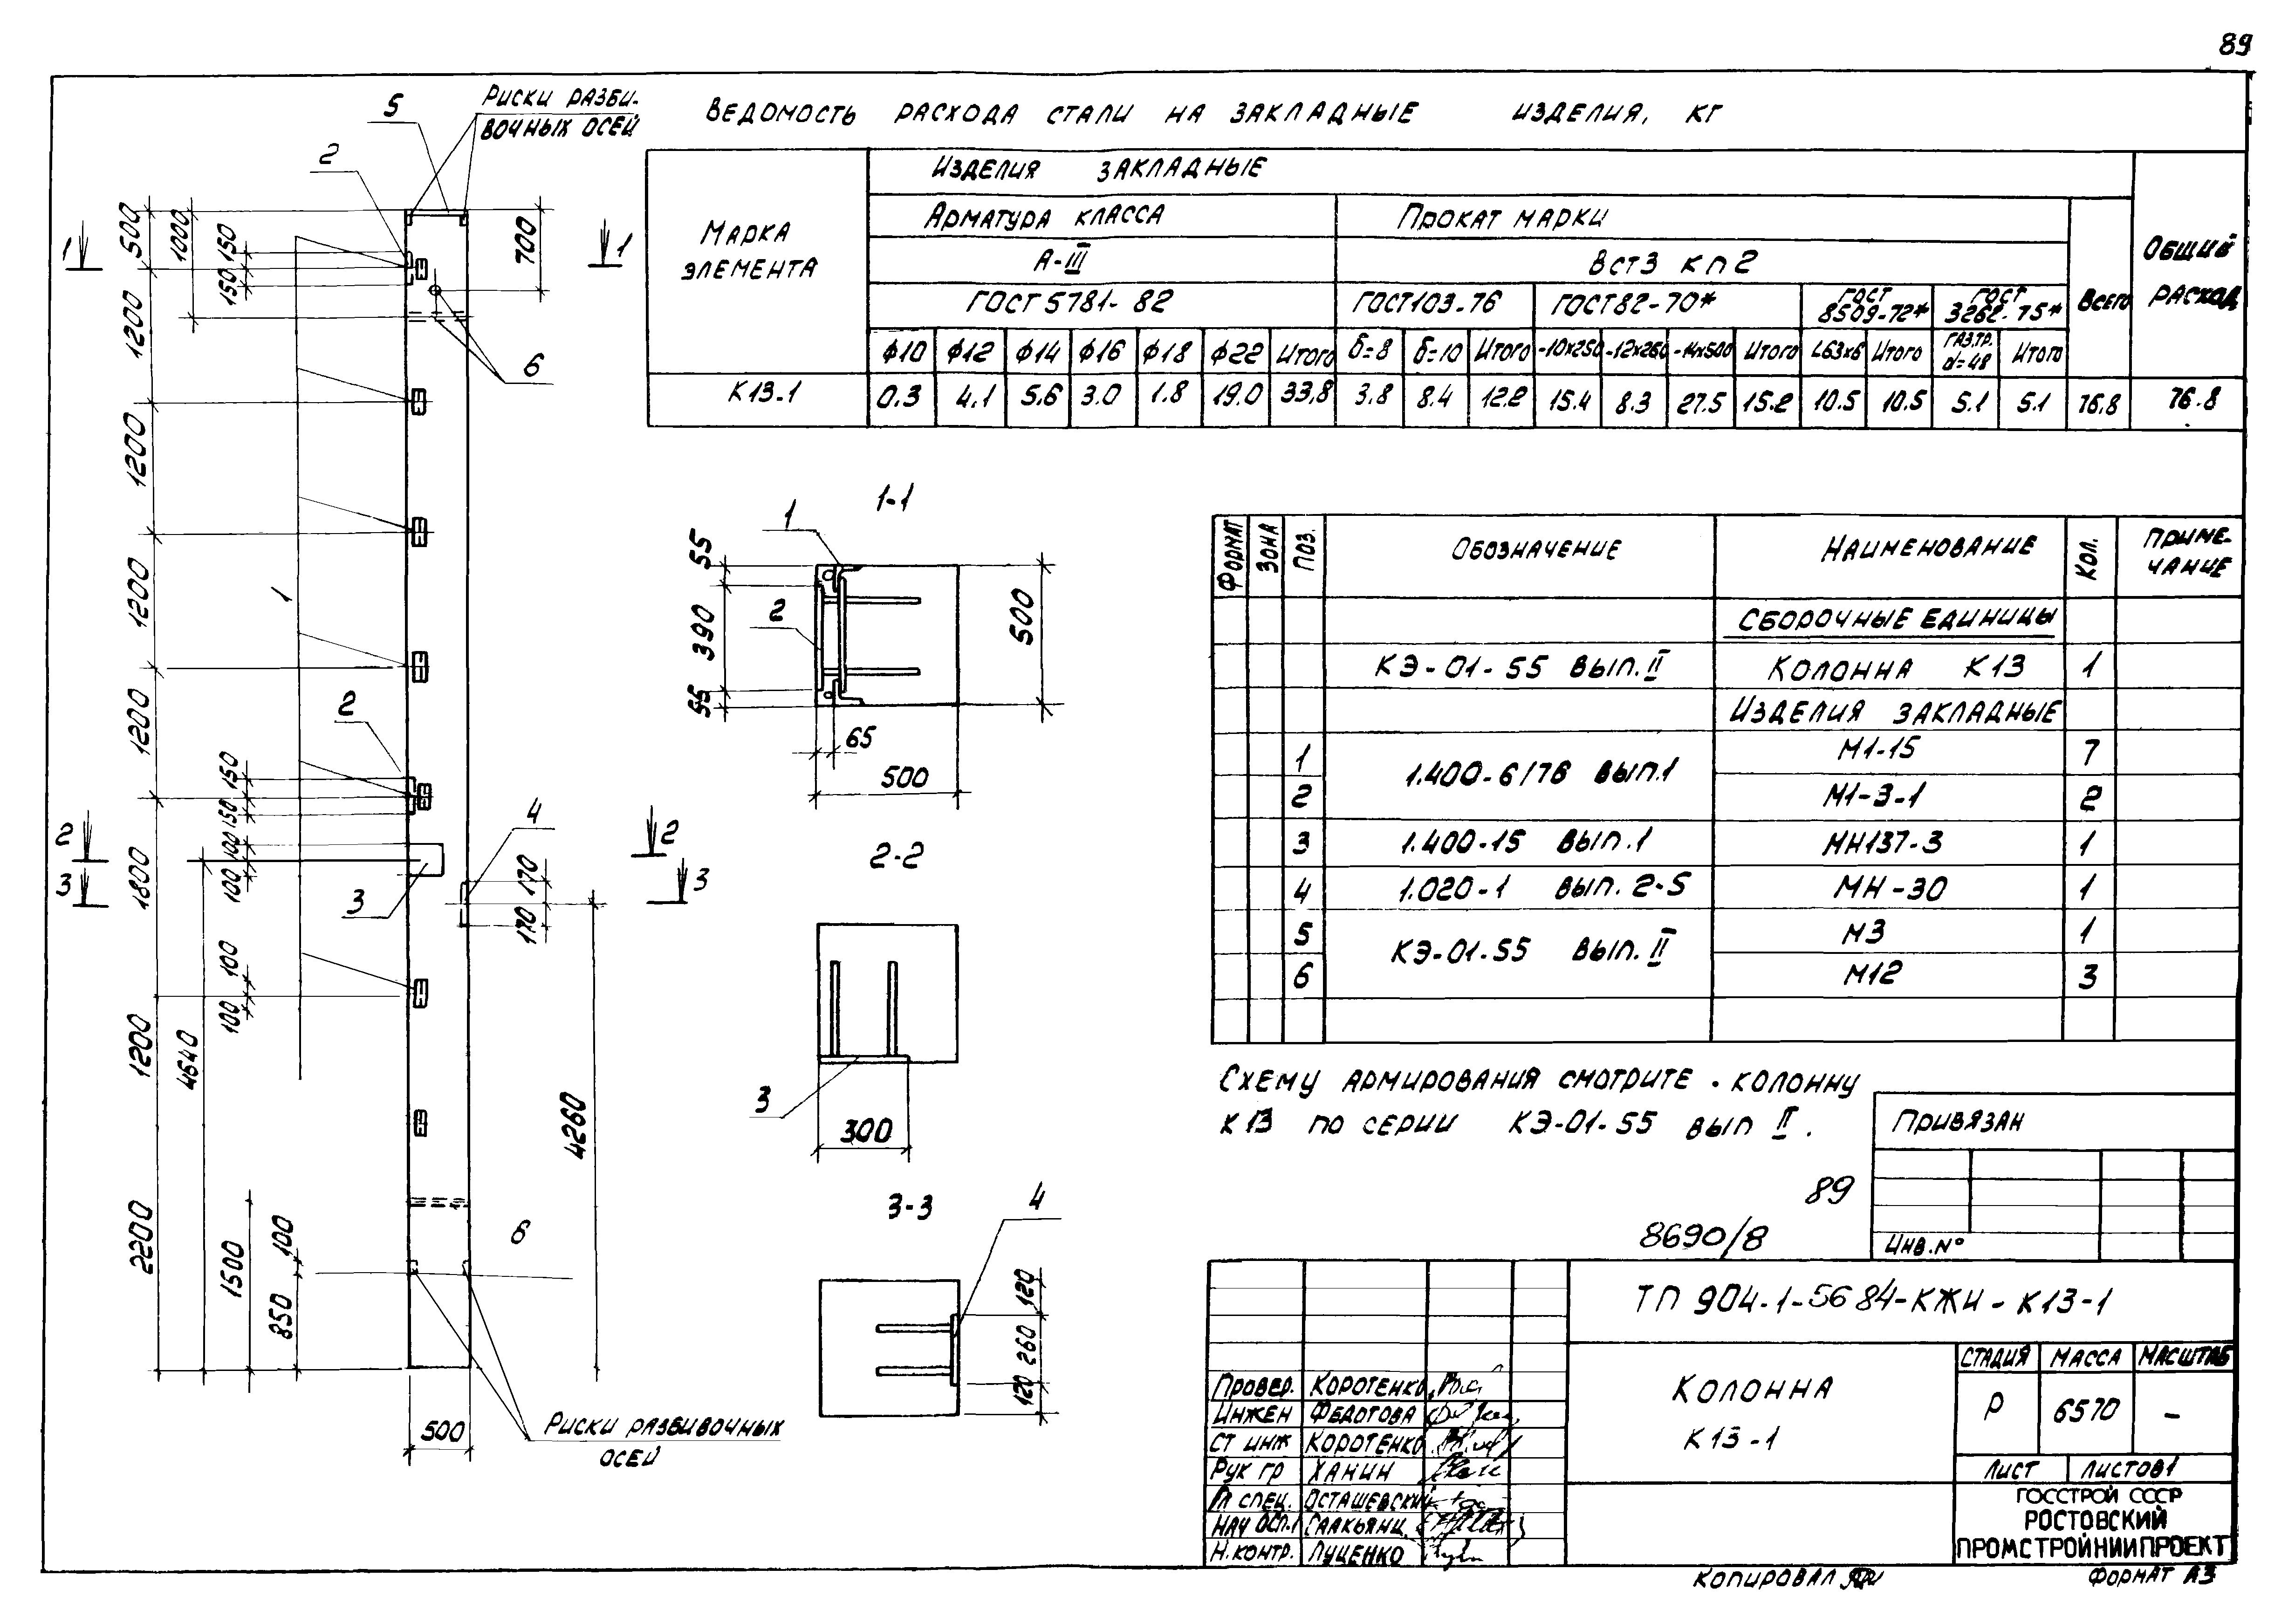 89
Ведомость расхода стали на закладные изделия, кг
Марка элемента
Изделия закладные
Общий расход
Арматура класса
Прокат марки
Всего
А-III
ВСт3 кп2
ГОСТ 5781-82
ГОСТ 103-76
ГОСТ 82-70*
ГОСТ 8509-72*
ГОСТ 3262-75*
ф10 ф12 ф14 ф16 ф18 ф22 Итого δ=8 δ=10 Итого -10х250 -12х260 -14х500 Итого L63х6 Итого газ.тр. d=48 Итого
К13-1 0.3 4.1 5.6 3.0 1.8 19.0 33,8 3.8 8.4 12.2 15.4 8.3 27.5 15.2 10.5 10.5 5.1 5.1 76,8 76.8
5
Риски разби-
вочных осей
2
1 1
500
1000
150
150
700
1200
6
1200
1
1200
1200
2
150
150
2 2
100
100
4
3 3
3
170
170
1800
100
100
1200
4640
4260
2200
1500
100
850
6
500
Риски разбивочных
осей
1-1
1
2
55
390
55
500
65
500
2-2
3
300
3-3
4
120
260
120
Формат Зона Поз. Обозначение Наименование Кол. Приме-
чание
Сборочные единицы
КЭ-01-55 вып. II Колонна К13 1
Изделия закладные
1 1.400-6/76 вып.1 М1-15 7
2 М1-3-1 2
3 1.400-15 вып.1 МН137-3 1
4 1.020-1 вып. 2-5 МН-30 1
5 КЭ-01-55 вып. II М3 1
6 М12 3
Схему армирования смотрите . колонну
К13 по серии КЭ-01-55 вып II.
Привязан
Инв.№
89
8690/8
ТП 904-1-56 84-КЖИ-К13-1
Колонна
К13-1
Стадия Масса Масштаб
Р 6570 –
Лист Листов 1
Госстрой СССР
Ростовский
Промстройниипроект
Провер. Коротенко
Инжен Федотова
Ст инж Коротенко
Рук гр Ханин
Гл спец. Осташевский
Нач осп.1 Саакьянц
Н.контр. Луценко
Копировал
Формат А3